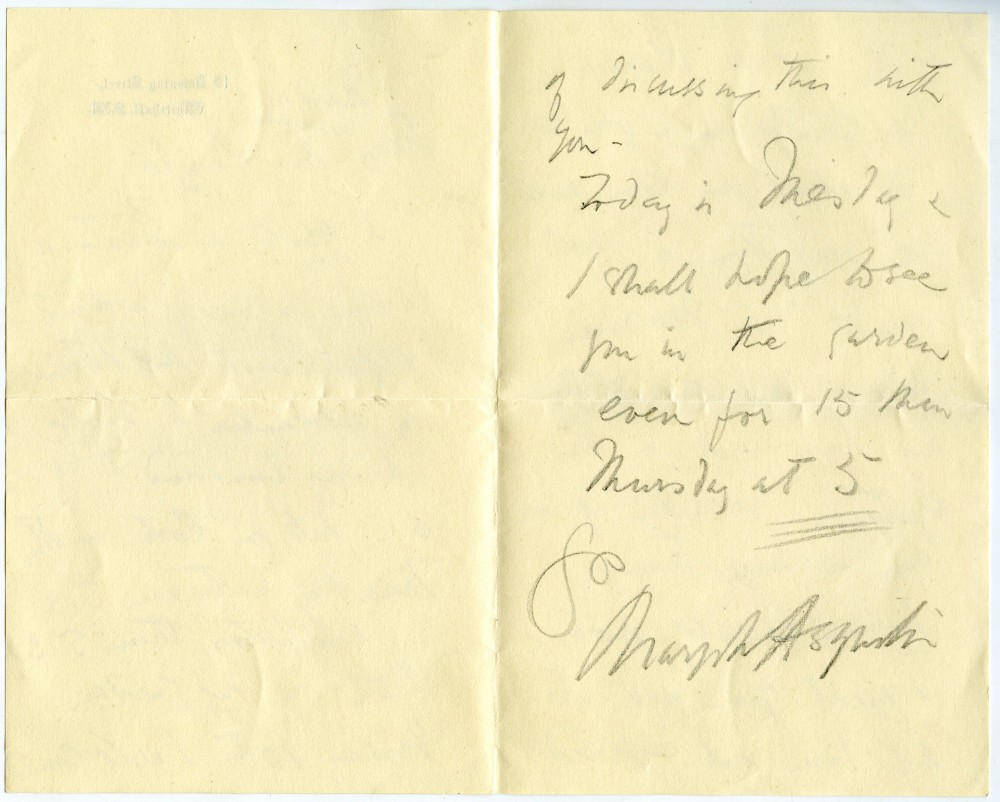 10 Downing Street,
Whitehall. S.W.
of discussing this with
you -
Today is Tuesday &
I shall hope to see
you in the garden
even for 15 min
Thursday at 5
Yrs
Margot Asquith